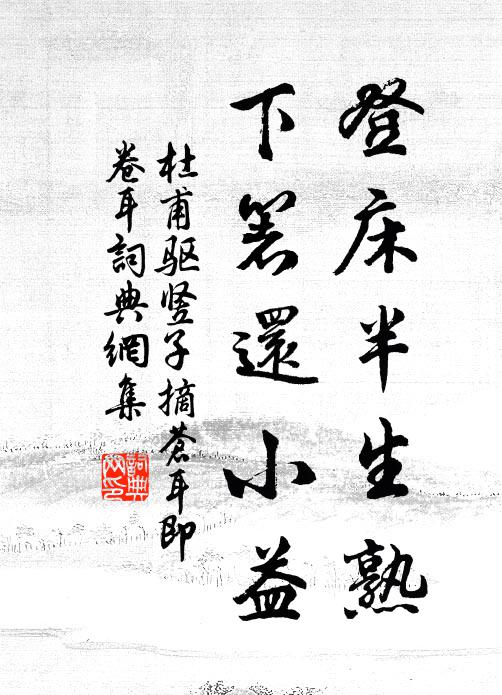 登床半生熟
下箸還小益
杜甫驱竖子摘蒼耳即
卷耳詞典網集
詞典網印